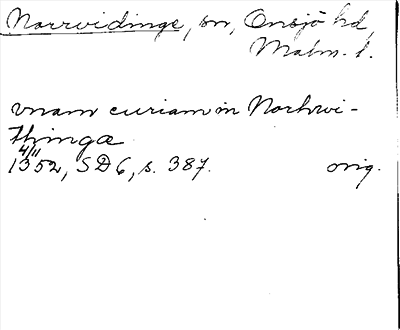 Norrvidinge, sn, Onsjö hd,
Malm. l.
vnam curiam in Norhwi-
thinga
4/11
1352, SD 6, s. 387. orig.